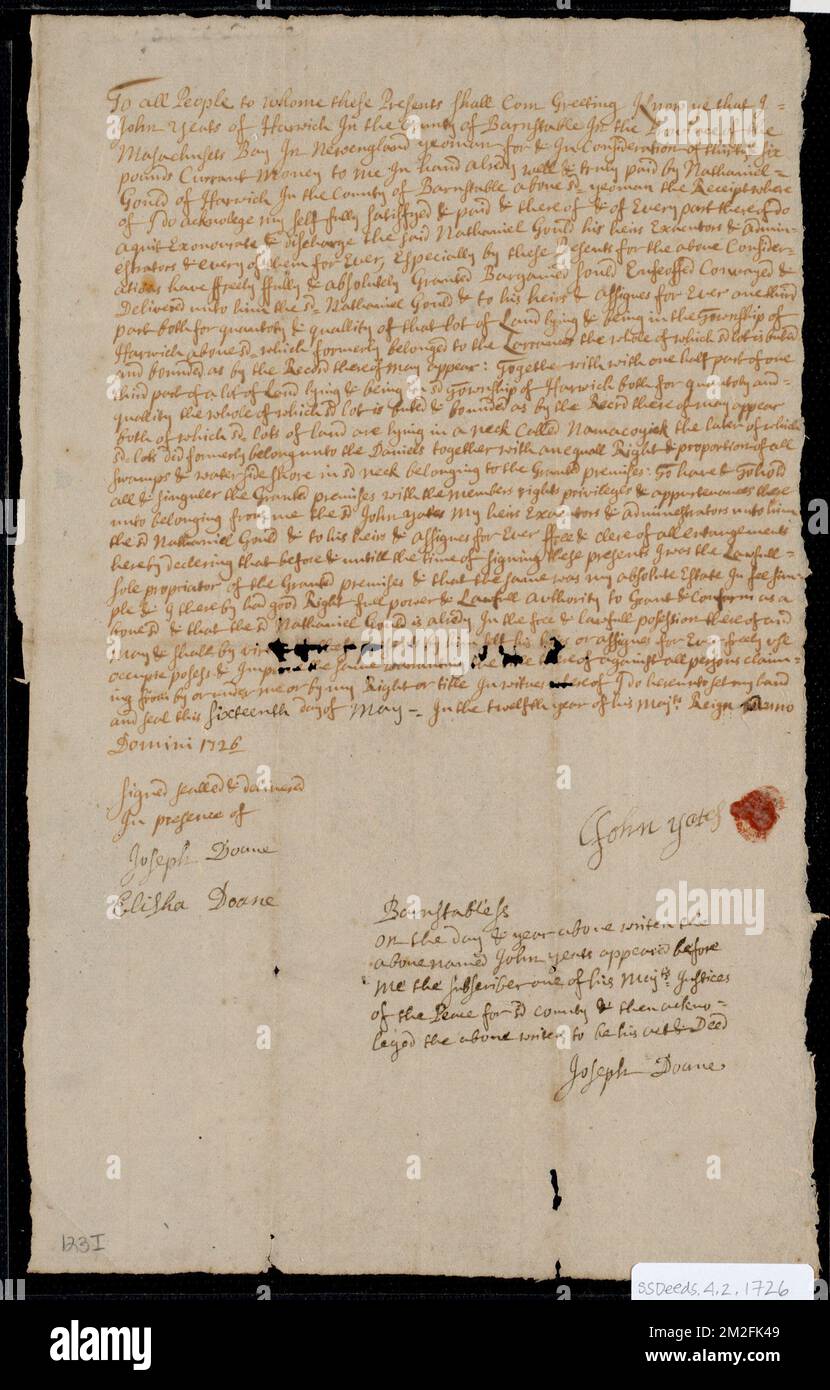 To all People to whome these Presents Shall Com Greeting Know ye that I-
John Yeats of Harwich In the County of Barnstable In the Province of the
Masachusets Bay In Newengland yeoman for & In Consideration of thirty six
pounds Currant Money to me In hand alredy well & truly paid by Nathaniel-
Gould of Harwich In the County of Barnstable above sd yeoman the Receipt where
of I do acknolege my self fully satisfyed & paid & there of & of Every part there of do
aquit Exonourate & discharge the said Nathaniel Gould his heirs Exacutors & Admin-
estrators & every of them for Ever, Especially by these Presents for the above Consider-
ations have ffreely ffully & absolutely Granted Bargained sould Enfeoffed Convayed &
Delivered unto him the sd Nathaniel Gould & to his heirs & assignes for Ever one third
part both for quantoty & quallity of that lot of Land lying & being in the Township of
Harwich above sd which formerly belonged to the the whole of which sd lot is buted
and bounded as by the Record there of may appear: Togethe with with one half part of one
third part of a lot of Land lying & being In sd Township of Harwich both for quantoty and-
quallity the whole of which sd lot is buted & bounded as by the Record there of may appear
both of which sd lots of land are lying in a neck Called Namacoyick the later of which
sd lots did formerly belong unto the Daniels together with an equall Right & proportion of all
swamps & water side shore in sd neck belonging to the Granted premises: To have & To hold
all & singuler the Granted premises with the members rights privileges & appurtenances there
unto belonging from me the sd John yates my heirs Exacutors & administrators unto him
the sd Nathaniel Gould & to his heirs & assignes for Ever ffree & clere of all entangements
hereby declering that before & untill the time of signing these presents I was the Lawfull-
sole propriator of the Granted premises & that the same was my absolute Estate In fee sim-
ple & I thereby had good Right full power & Lawfull authority to Grant & Conform as a
bove sd & that the sd Nathaniel Gould is alredy In the free & lawfull posestion there of and
may & shall by his heirs or assignes for Ever freely use
occupie poses & Improve the same against all persons claim-
ing from by or under me or by my Right or title In witnes where of I do hereunto set my hand
and seal this sixteenth day of May - In the twelfth year of his Majts Reign Anno
Domini 1726
signed sealled & delivered
In presence of
Joseph Doane
Elisha Doane
John yates
Barnstable ss
on the day & year above writen the
above named John yeats appeared before
me the subscriber one of his Majts Justices
of the Peace for sd county & then ackno-
leged the above writen to be his act & Deed
Joseph Doane
123I
SSDeeds.4.2.1726
alamy
Image ID: 2M2FK49
www.alamy.com